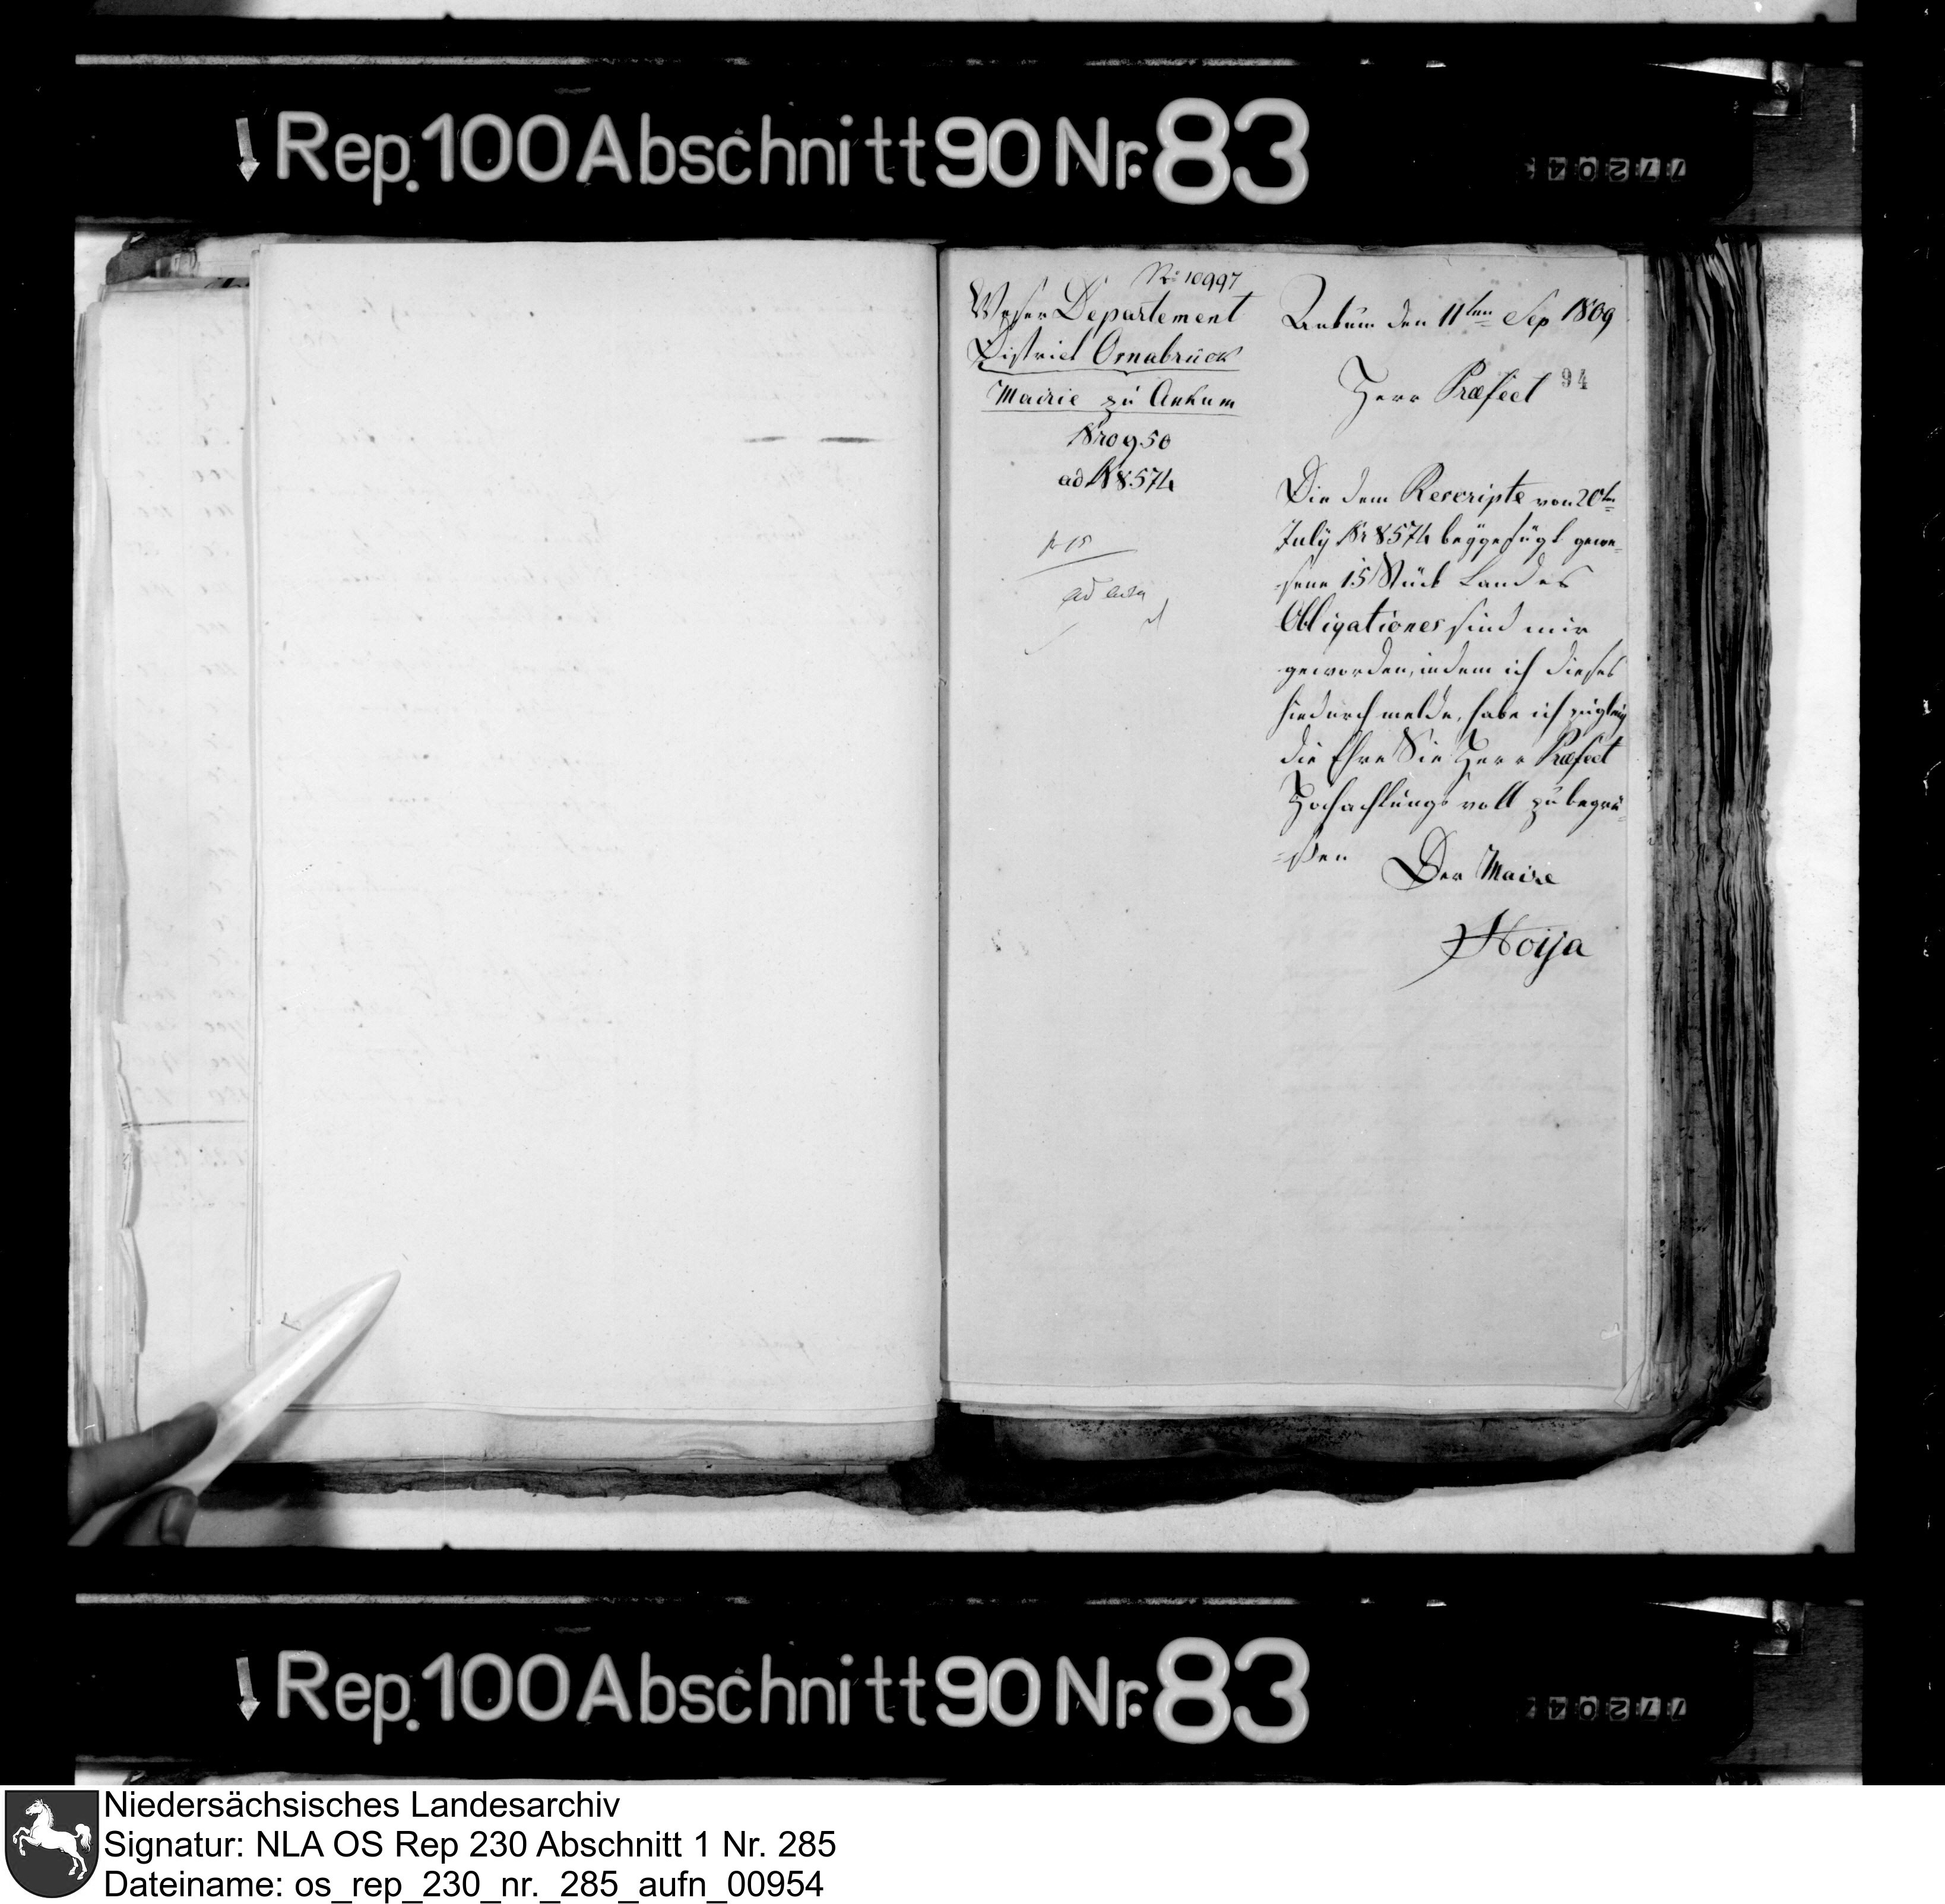 Rep. 100 Abschnitt 90 Nr. 83
No 10997
Weser Departement
District Osnabrück
Mairie zu Ankum
Nro 950
ad N 8574
pr 15
ad acta
Ankum den 11ten Sep 1809
94
Herr Præfect
Die dem Rescripte von 20ten
July Nr 8574 beÿgefügt gewe-
sene 15 Stück Landes
Obligationes sind mir
geworden, indem ich dieses
hiedurch melde, habe ich zugleich
die Ehre Sie Herr Præfect
Hochachtungsvoll zu begrü-
-ßen
Der Maire
Hoija
Rep. 100 Abschnitt 90 Nr. 83
Niedersächsisches Landesarchiv
Signatur: NLA OS Rep 230 Abschnitt 1 Nr. 285
Dateiname: os_rep_230_nr._285_aufn_00954